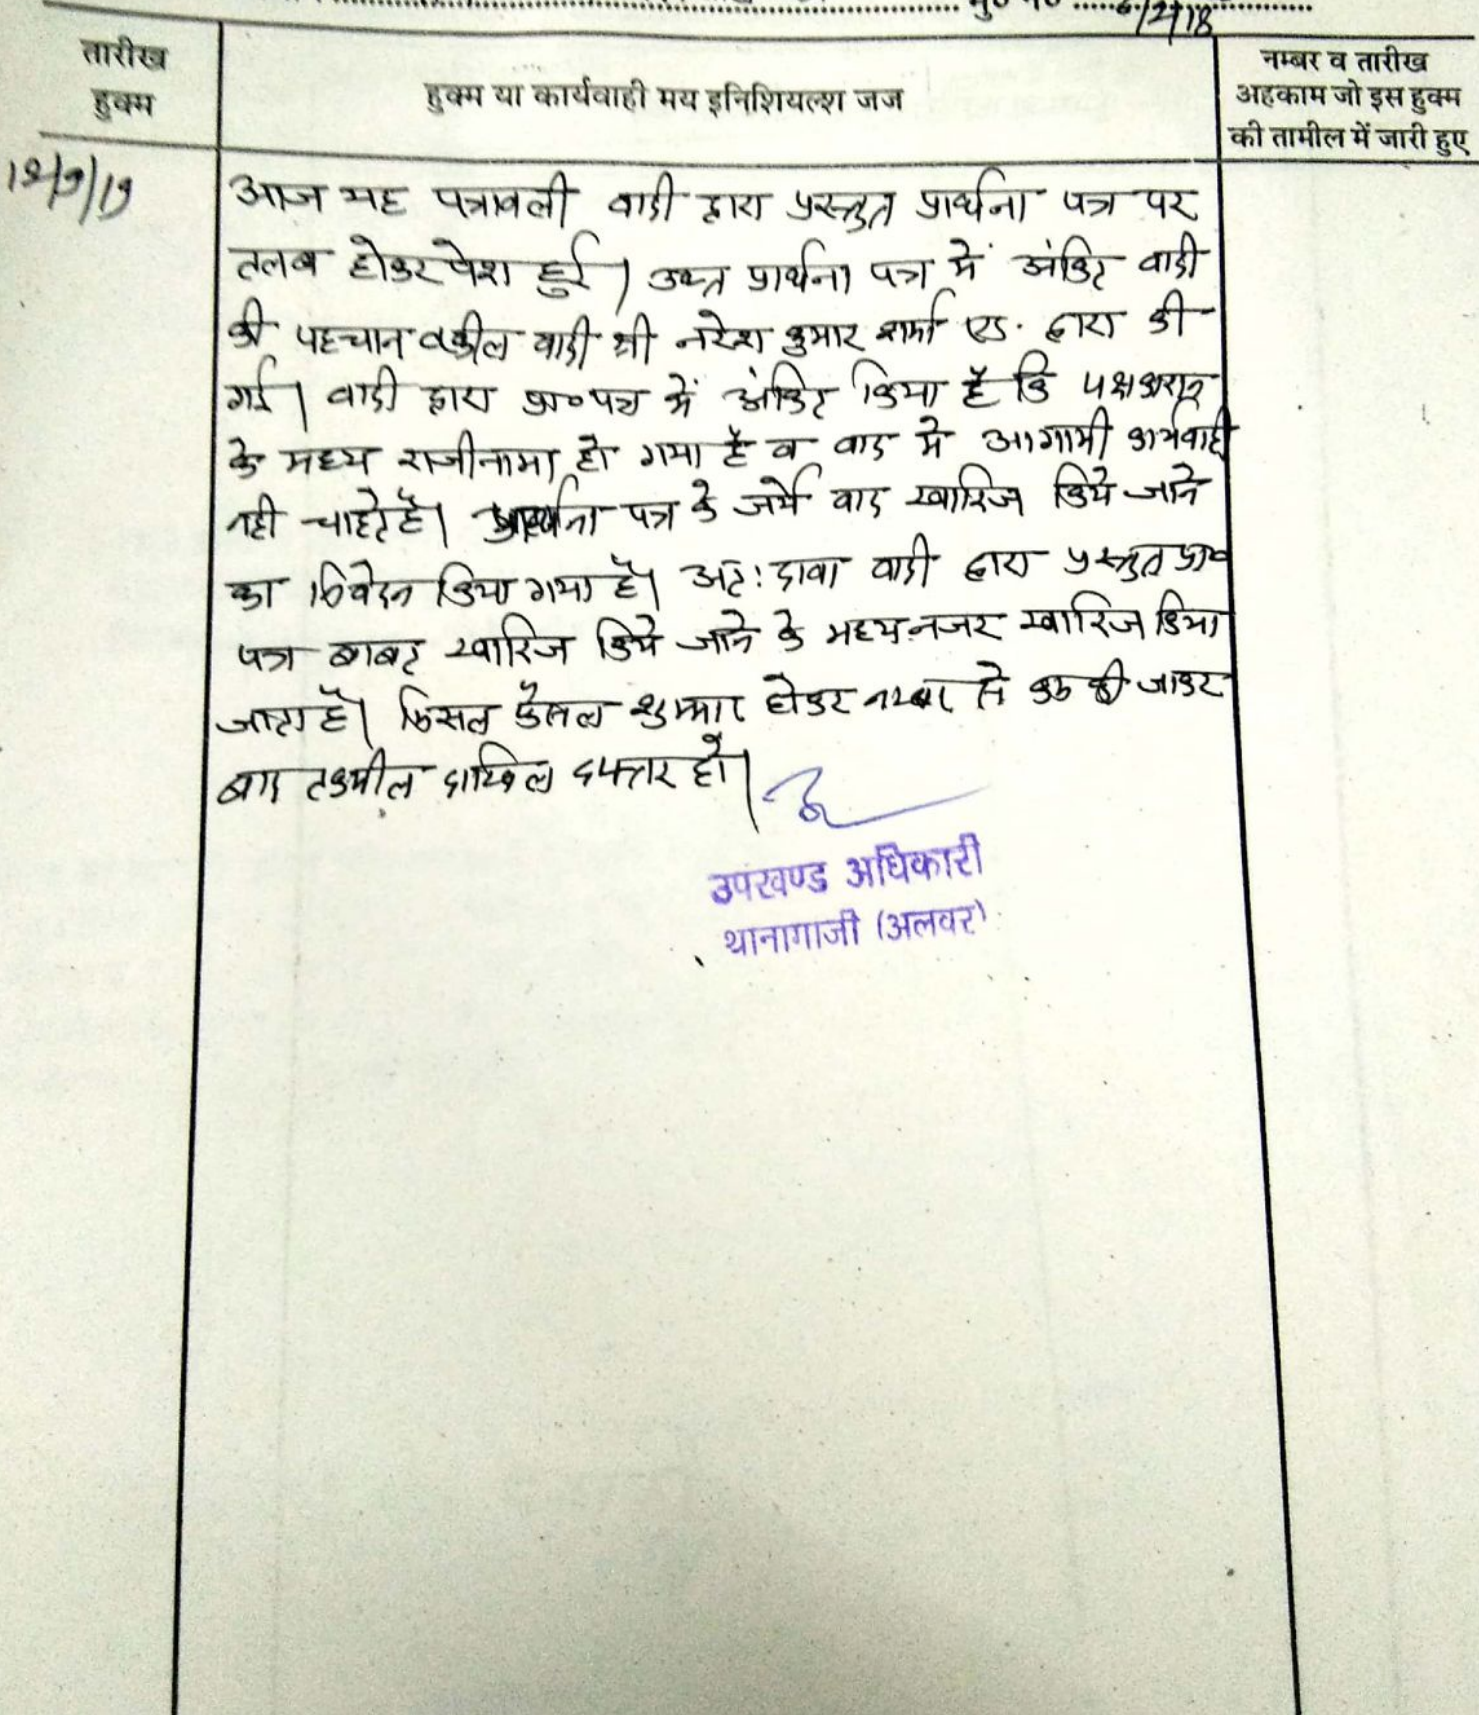 मु० नं० 6/2/18
तारीख
हुक्म
हुक्म या कार्यवाही मय इनिशियल्श जज
नम्बर व तारीख
अहकाम जो इस हुक्म
की तामील में जारी हुए
आज यह पत्रावली वादी द्वारा प्रस्तुत प्रार्थना पत्र पर
तलब होकर पेश हुई। उक्त प्रार्थना पत्र में अंकित वादी
की पहचान वकील वादी श्री नरेश कुमार शर्मा एड. द्वारा की
गई। वादी द्वारा प्रा०पत्र में अंकित किया है कि पक्षकारान
के मध्य राजीनामा हो गया है व वाद मे आगामी कार्यवाही
नही चाहते है। प्रार्थना पत्र के जर्ये वाद खारिज किये जाने
का निवेदन किया गया है। अतः दावा वादी द्वारा प्रस्तुत प्रा०
पत्र बाबत खारिज किये जाने के मध्यनजर खारिज किया
जाता है। मिसल फैसल शुमार होकर नम्बर से कम की जाकर
बाद तकमील दाखिल दफ्तर हो।
उपखण्ड अधिकारी
थानागाजी (अलवर)